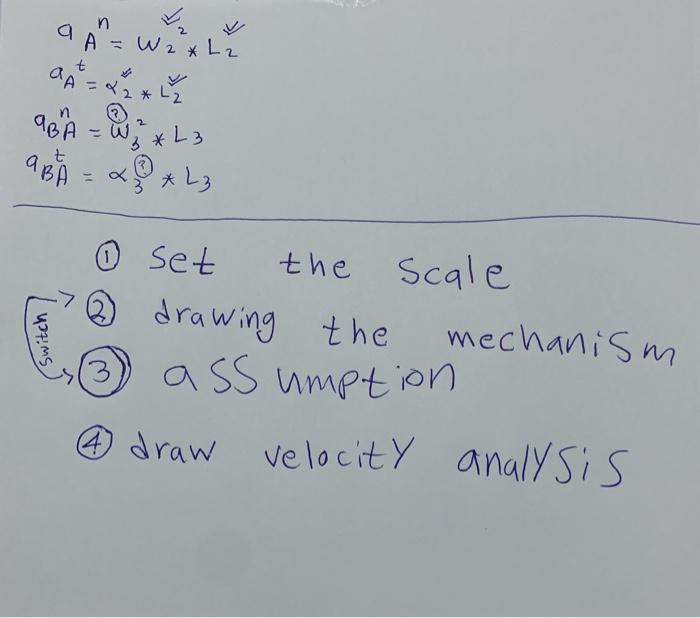 a_A^n = w_2^2 * L_2
a_A^t = α_2 * L_2
a_BA^n = w_3^2 * L_3 ?
a_BA^t = α_3 * L_3 ?
① set the scale
② drawing the mechanism
switch
③ assumption
④ draw velocity analysis